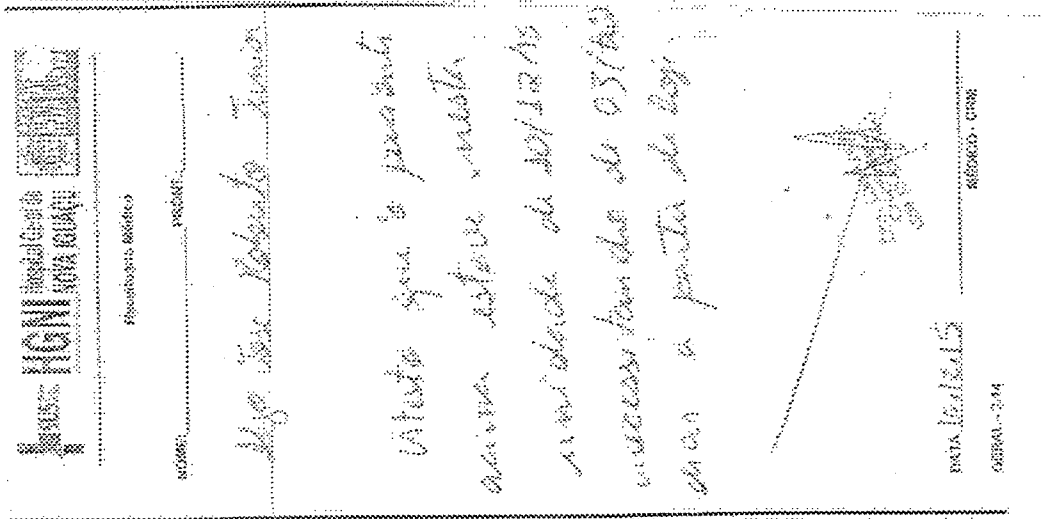 SUS HGNI Hospital Geral
NOVA IGUAÇU
Receituário Médico
NOME: PRONT.
José Roberto
Atesto que o paciente
acima esteve nesta
unidade de 10/12/15
necessitando de 03/
dias a partir de hoje
DATA 10/12/15
MÉDICO - CRM
GERAL-244